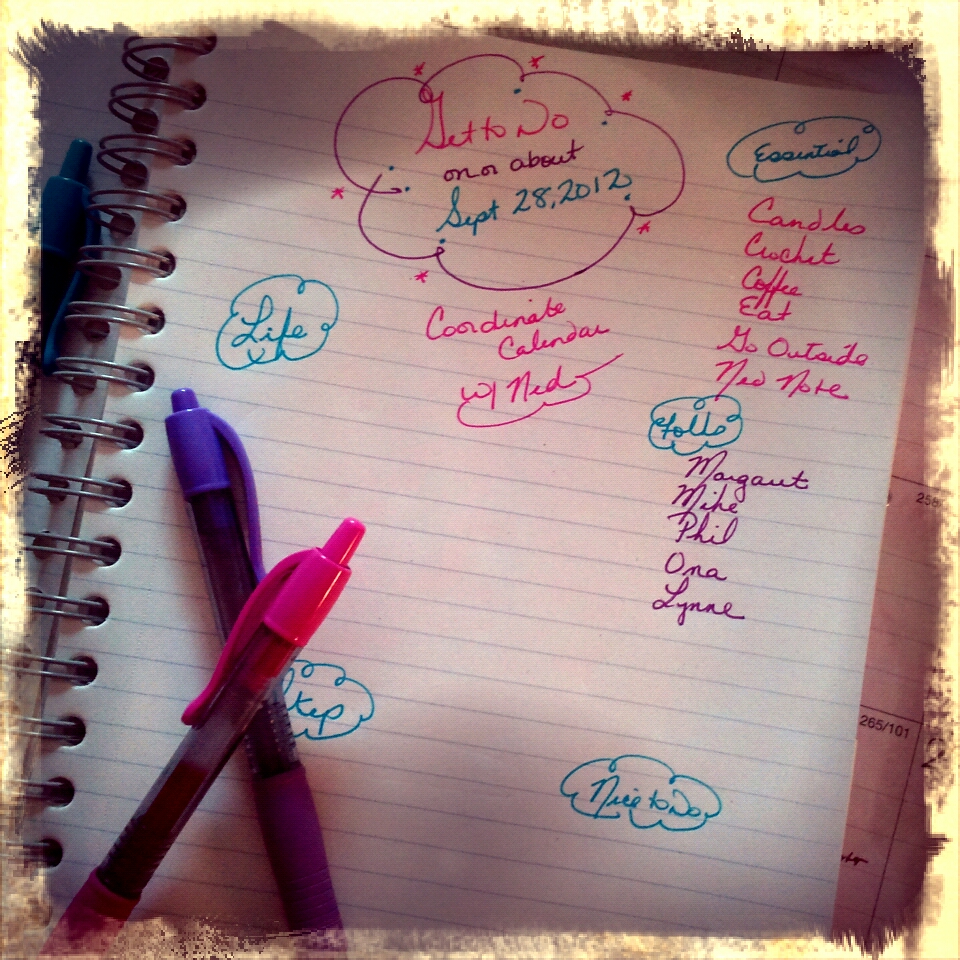 Get to Do
on or about
Sept 28, 2012
Essential
Candles
Crochet
Coffee
Eat
Go Outside
Ned Note
Life
Coordinate
Calendar
w/ Ned
Folks
Margaret
Mike
Phil
Ona
Lynne
Nice to Do
265/101
258